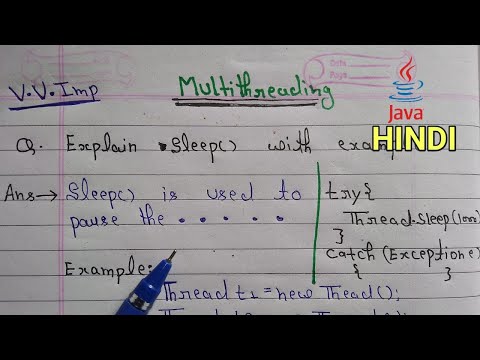 V.V. Imp
Multithreading
Java
HINDI
Q. Explain Sleep() with examp
Ans→ Sleep() is used to
pause the • • • • • •
Example:
Thread t1 = new Thead();
try{
Thread.Sleep(1000)
}
catch (Exception e)
{ }